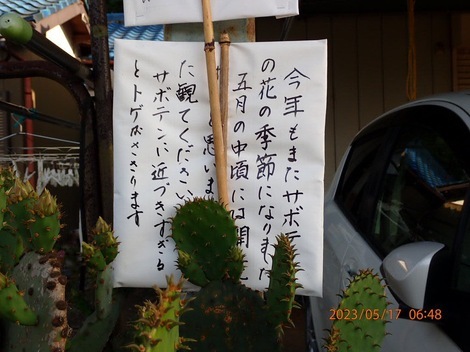 今年もまたサボテ
の花の季節になりました
五月の中頃には開
と思いま
た観てください
サボテンに近づきすぎる
とトゲがささります
2023/05/17 06:48